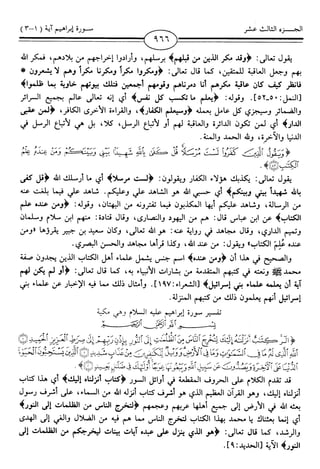 الجــزء الثالث عشر
٩٦٦
سـورة إبراهيم آية (١-٣)
يقول تعالى: ﴿وقد مكر الذين من قبلهم﴾ برسلهم، وأرادوا إخراجهم من بلادهم، فمكر الله
بهم وجعل العاقبة للمتقين، كما قال تعالى: ﴿ومكروا مكراً ومكرنا مكراً وهم لا يشعرون *
فانظر كيف كان عاقبة مكرهم أنا دمرناهم وقومهم أجمعين فتلك بيوتهم خاوية بما ظلموا﴾
[النمل: ٥٠-٥٢]. وقوله: ﴿يعلم ما تكسب كل نفس﴾ أي إنه تعالى عالم بجميع السرائر
والضمائر وسيجزي كل عامل بعمله ﴿وسيعلم الكفار﴾، والقراءة الأخرى الكافر، ﴿لمن عقبى
الدار﴾ أي لمن تكون الدائرة والعاقبة لهم أو لأتباع الرسل، كلا، بل هي لأتباع الرسل في
الدنيا والآخرة، ولله الحمد والمنة.
وَيَقُولُ الَّذِينَ كَفَرُوا لَسْتَ مُرْسَلًا قُلْ كَفَى بِاللَّهِ شَهِيدًا بَيْنِي وَبَيْنَكُمْ وَمَنْ عِندَهُ عِلْمُ
الْكِتَابِ
يقول تعالى: يكذبك هؤلاء الكفار ويقولون: ﴿لست مرسلاً﴾ أي ما أرسلك الله ﴿قل كفى
بالله شهيداً بيني وبينكم﴾ أي حسبي الله هو الشاهد علي وعليكم. شاهد علي فيما بلغت عنه
من الرسالة، وشاهد عليكم أيها المكذبون فيما تفترونه من البهتان، وقوله: ﴿ومن عنده علم
الكتاب﴾ عن ابن عباس قال: هم من اليهود والنصارى، وقال قتادة: منهم ابن سلام وسلمان
وتميم الداري، وقال مجاهد في رواية عنه: هو الله تعالى، وكان سعيد بن جبير يقرؤها «ومن
عنده عُلِمَ الكتاب» ويقول: من عند الله، وكذا قرأها مجاهد والحسن البصري.
والصحيح في هذا أن ﴿ومن عنده﴾ اسم جنس يشمل علماء أهل الكتاب الذين يجدون صفة
محمد ﷺ ونعته في كتبهم المتقدمة من بشارات الأنبياء به، كما قال تعالى: ﴿أو لم يكن لهم
آية أن يعلمه علماء بني إسرائيل﴾ [الشعراء: ١٩٧]. وأمثال ذلك مما فيه الإخبار عن علماء بني
إسرائيل أنهم يعلمون ذلك من كتبهم المنزلة.
تفسير سورة إبراهيم عليه السلام وهي مكية
بِسْمِ اللَّهِ الرَّحْمَٰنِ الرَّحِيمِ
الر كِتَابٌ أَنزَلْنَاهُ إِلَيْكَ لِتُخْرِجَ النَّاسَ مِنَ الظُّلُمَاتِ إِلَى النُّورِ بِإِذْنِ رَبِّهِمْ إِلَى صِرَاطِ الْعَزِيزِ الْحَمِيدِ
اللَّهِ الَّذِي لَهُ مَا فِي السَّمَاوَاتِ وَمَا فِي الْأَرْضِ وَوَيْلٌ لِّلْكَافِرِينَ مِنْ عَذَابٍ شَدِيدٍ الَّذِينَ يَسْتَحِبُّونَ الْحَيَاةَ
الدُّنْيَا عَلَى الْآخِرَةِ وَيَصُدُّونَ عَن سَبِيلِ اللَّهِ وَيَبْغُونَهَا عِوَجًا أُولَٰئِكَ فِي ضَلَالٍ بَعِيدٍ
قد تقدم الكلام على الحروف المقطعة في أوائل السور ﴿كتاب أنزلناه إليك﴾ أي هذا كتاب
أنزلناه إليك، وهو القرآن العظيم الذي هو أشرف كتاب أنزله الله من السماء، على أشرف رسول
بعثه الله في الأرض إلى جميع أهلها عربهم وعجمهم ﴿لتخرج الناس من الظلمات إلى النور﴾
أي إنما بعثناك يا محمد بهذا الكتاب لتخرج الناس مما هم فيه من الضلال والغي إلى الهدى
والرشد، كما قال تعالى: ﴿هو الذي ينزل على عبده آيات بينات ليخرجكم من الظلمات إلى
النور﴾ الآية [الحديد: ٩].